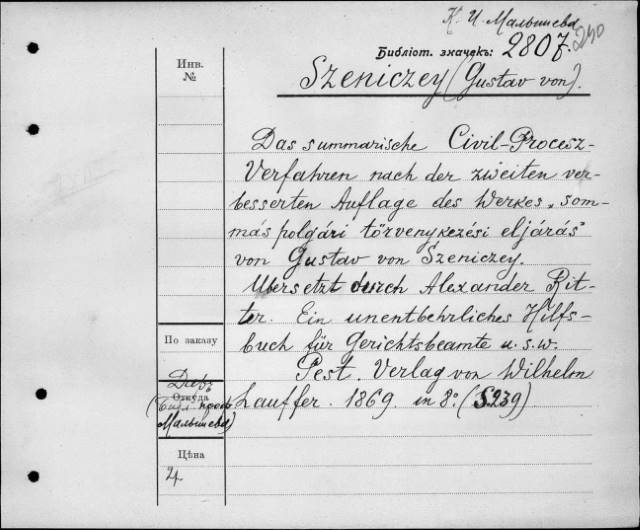 К. И. Малышева
240
Библіот. значекъ: 2807.
Szeniczey (Gustav von).
Инв.
№
Das summarische Civil-Procesz-
Verfahren nach der zweiten ver-
besserten Auflage des Werkes „som-
más polgári törvenykezési eljárás"
von Gustav von Szeniczey.
Ubersetzt durch Alexander Rit-
ter. Ein unentbehrliches Hilfs-
buch für Gerichtsbeamte u. s. w.
Pest. Verlag von Wilhelm
Lauffer. 1869. in 8º. (S. 239)
По заказу
Откуда
Малышева)
Цѣна
4